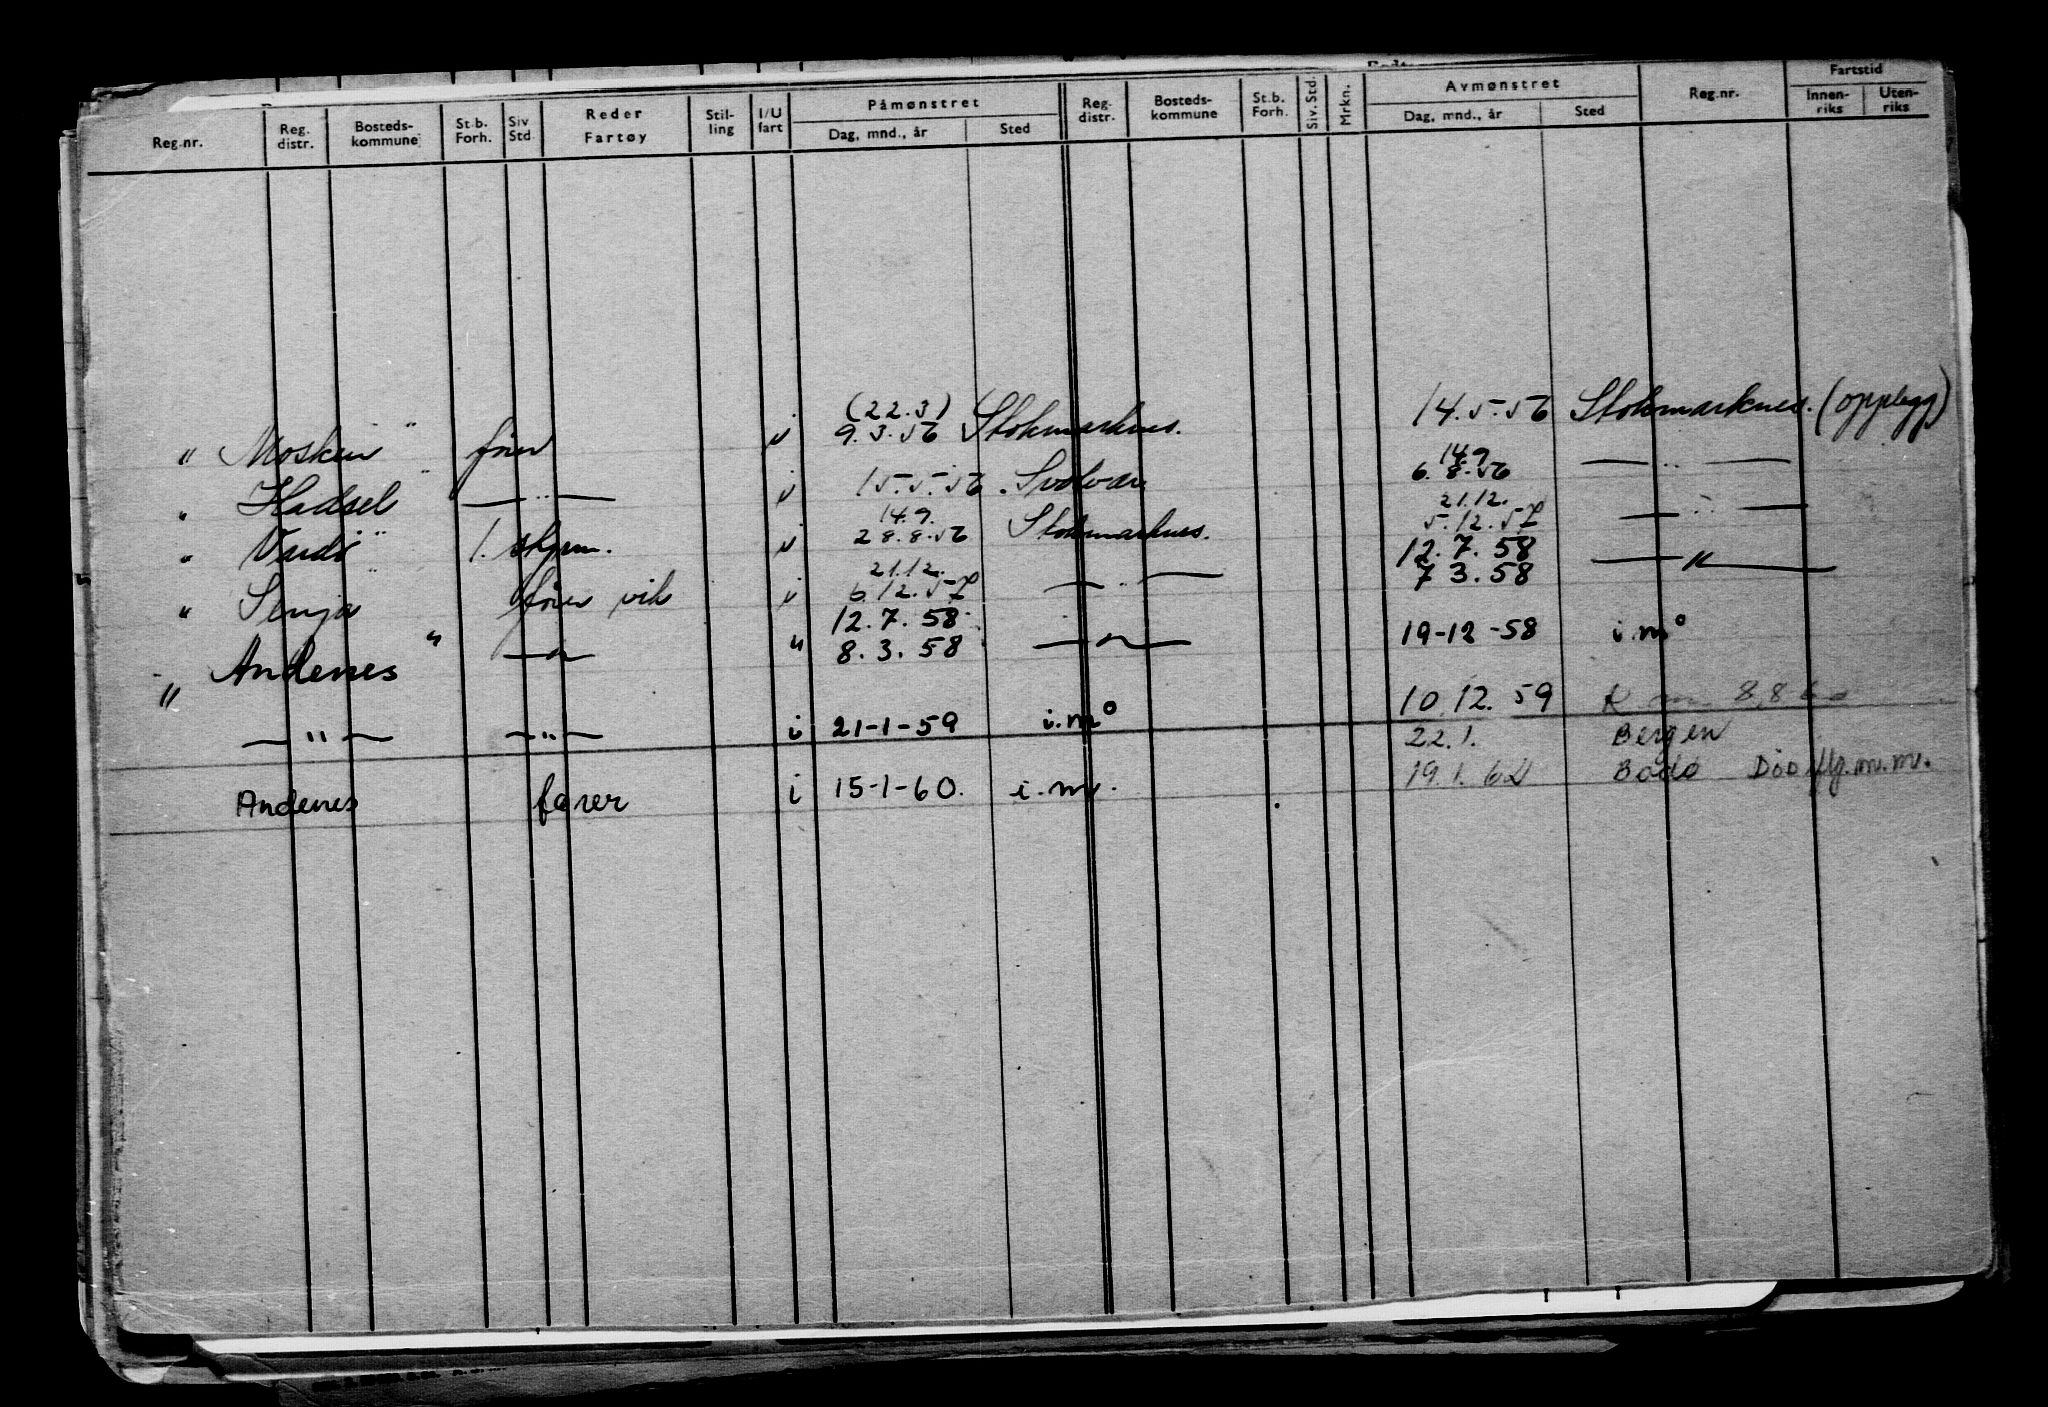 Reg.nr. Reg. distr. Bosteds- kommune St.b. Forh. Siv Std Reder Fartøy Stil- ling I/U fart Påmønstret Dag, mnd., år Sted Reg- distr. Bosteds- kommune St.b. Forh. Siv. Std. Mrkn. Avmønstret Dag, mnd., år Sted Reg.nr. Fartstid Innen- riks Uten- riks
(22.3)
" Mosken " fører i 9.3.56 Stokmarknes. 14.5.56 Stokmarknes. (opplegg)
14.9
" Hadsel " — " — i 15.5.56 . Svolvær 6.8.56 — " —
14.9. 21.12.
" Vardø " 1. skjem. i 28.8.56 Stokmarknes. 5.12.57 — " —
21.12. 12.7.58
" Senja " fører vik i 6.12.57 — " — 7 3.58 — " —
12.7.58
" Andenes " — " — " 8.3.58 — " — 19-12-58 i.m°
— " — — " — i 21-1-59 i.m° 10.12.59
22.1. Bergen
Andenes fører i 15-1-60. i.m. 19.1.62 Bodø